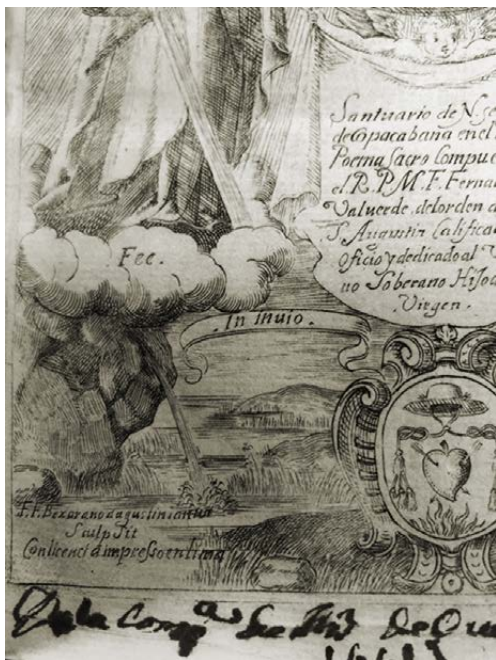 Santuario de N. Se
de Copacabana en el
Poema Sacro Compue
el R. P. M. F. Ferna
Valverde, del orden d
S. Augustin Califica
Oficio y dedicado al
no Soberano Hijo d
Virgen.
Fee.
In inuio.
F. F. Bexarano Agustinianus
Sculpsit
Con licencia impresso en lima
De la Comp.ª de